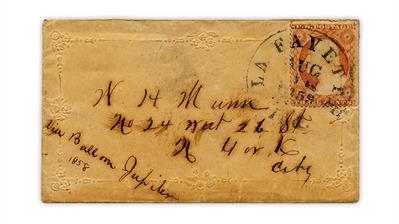 LA FAYETTE
AUG
N. H. Munn
No 24 West 26 St
N York
City
Via Balloon Jupiter
1858